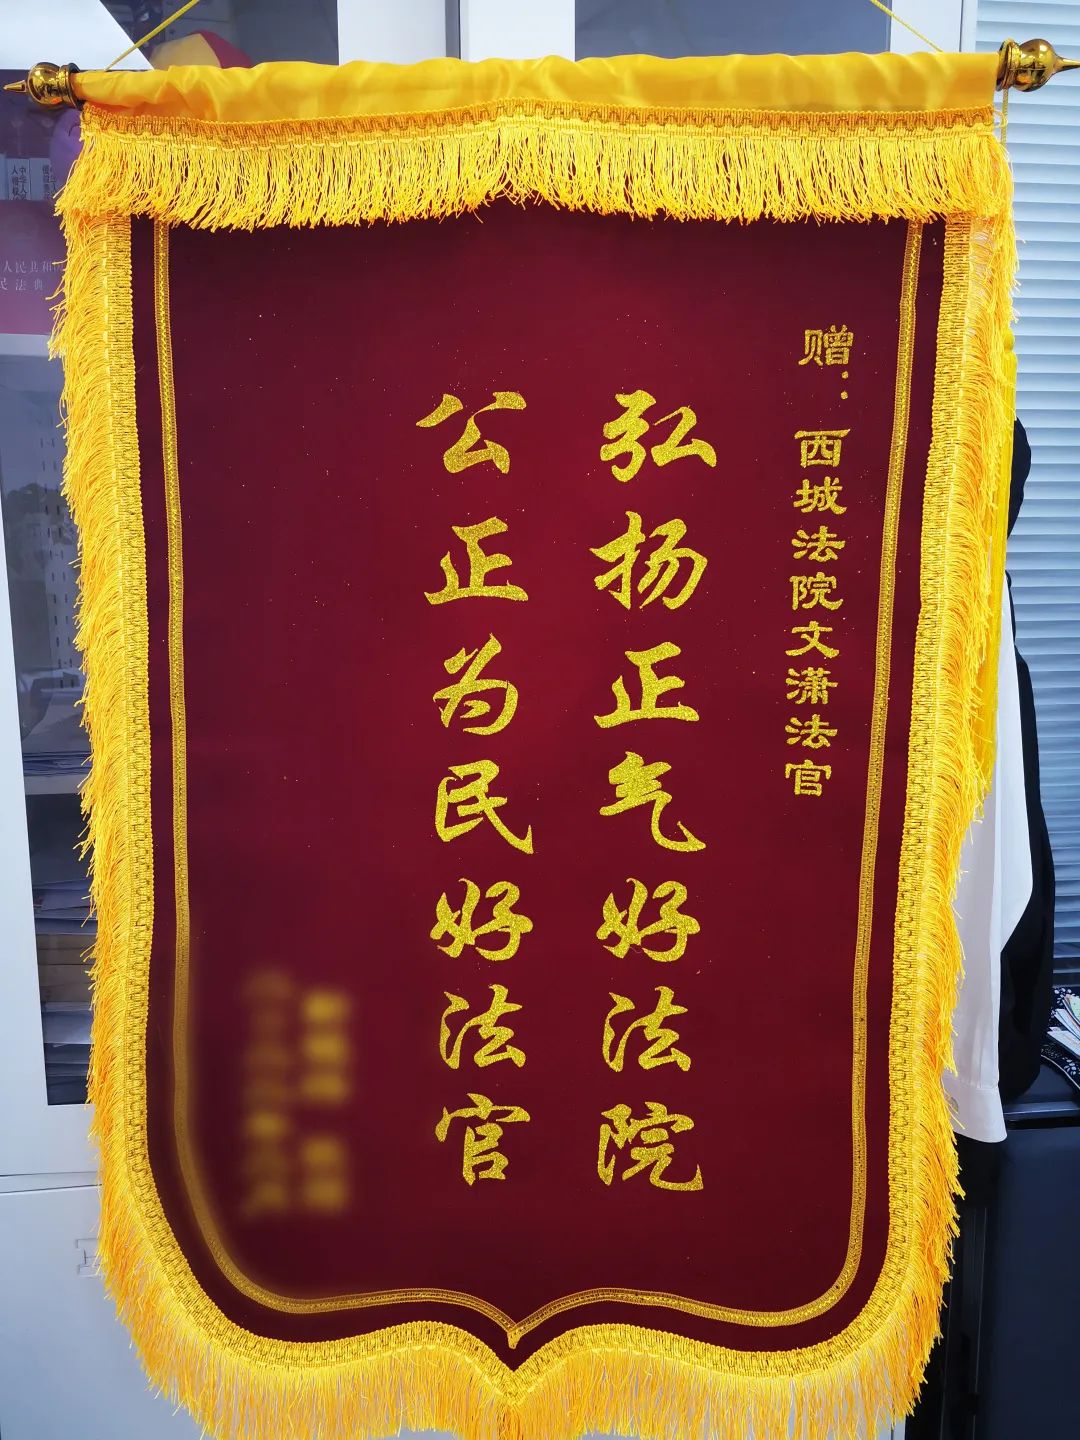 赠：西城法院文潇法官
弘扬正气好法院
公正为民好法官
人民共和
民法典